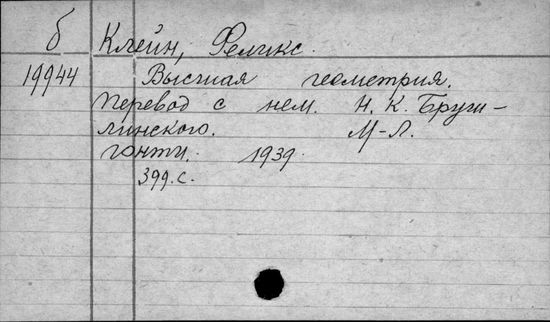 б Клейн, Феликс.
19944 Высшая геометрия.
Перевод с нем. Н. К. Бруш-
линского. М-Л.
гонти. 1939
399.с.